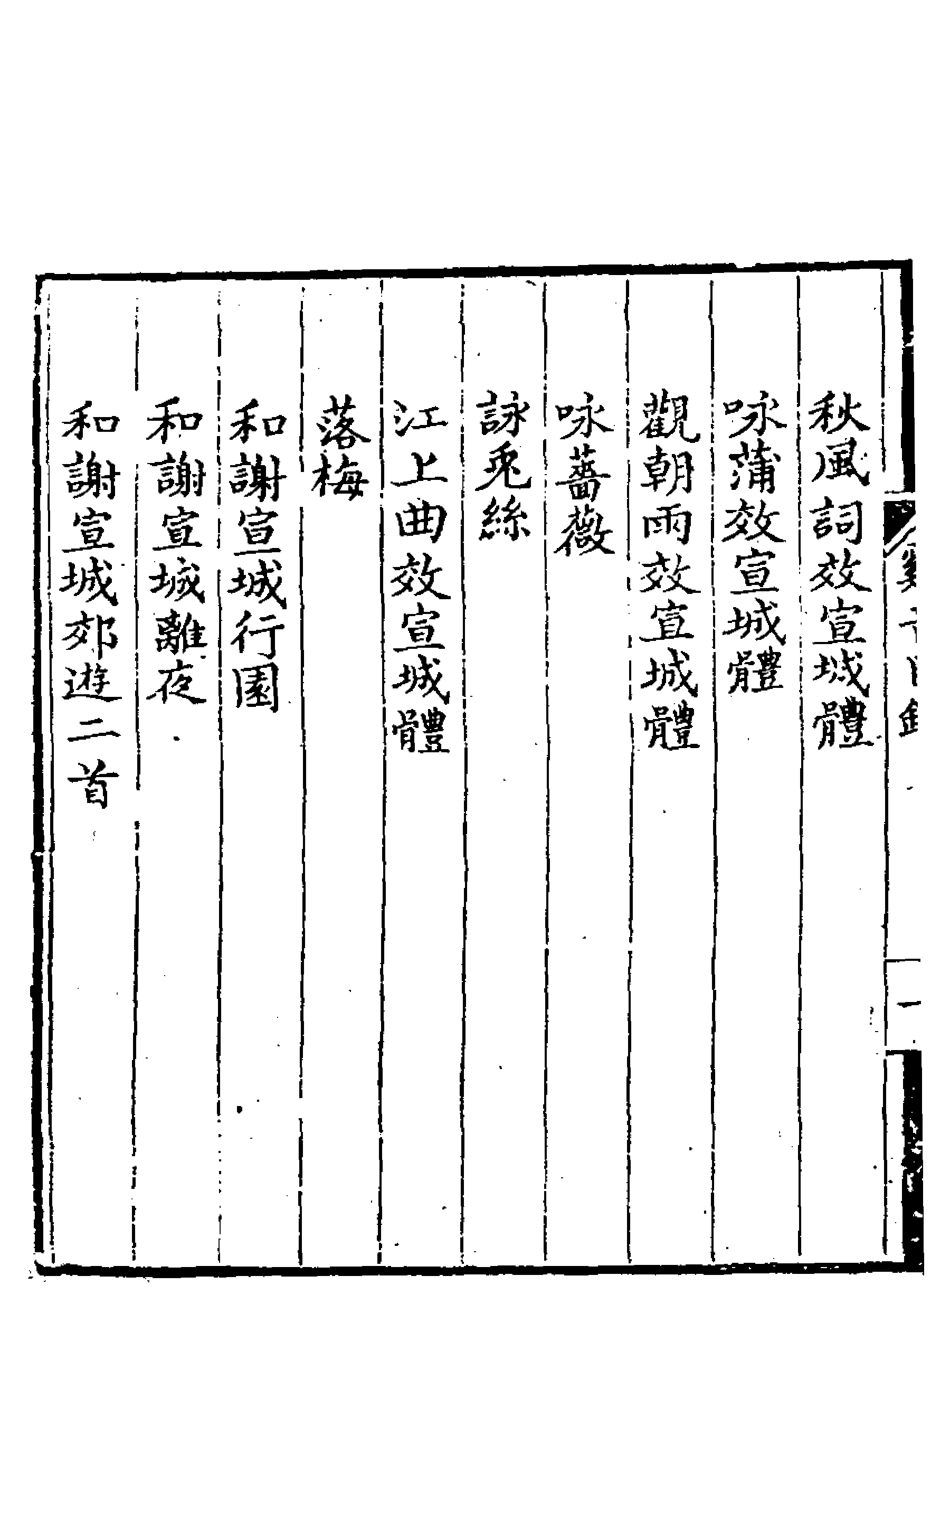 秋風詞效宣城體
咏蒲效宣城體
觀朝雨效宣城體
咏薔薇
詠兎絲
江上曲效宣城體
落梅
和謝宣城行園
和謝宣城離夜
和謝宣城郊遊二首
一